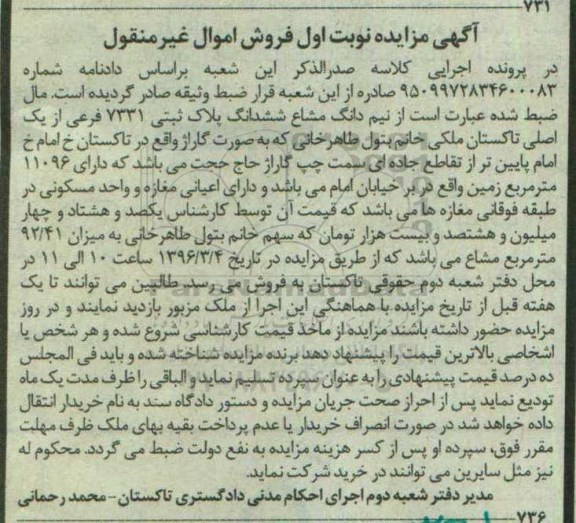 ۷۳۱
آگهی مزایده نوبت اول فروش اموال غیر منقول
در پرونده اجرایی کلاسه صدرالذکر این شعبه براساس دادنامه شماره
۹۵۰۹۹۷۲۸۳۴۶۰۰۰۸۳ صادره از این شعبه قرار ضبط وثیقه صادر گردیده است. مال
ضبط شده عبارت است از نیم دانگ مشاع ششدانگ پلاک ثبتی ۷۳۳۱ فرعی از یک
اصلی تاکستان ملکی خانم بتول طاهرخانی که به صورت گاراژ واقع در تاکستان خ امام خ
امام پایین تر از تقاطع جاده ای سمت چپ گاراژ حاج حجت می باشد که دارای ۱۱۰۹۶
مترمربع زمین واقع در بر خیابان امام می باشد و دارای اعیانی مغازه و واحد مسکونی در
طبقه فوقانی مغازه ها می باشد که قیمت آن توسط کارشناس یکصد و هشتاد و چهار
میلیون و هشتصد و بیست هزار تومان که سهم خانم بتول طاهرخانی به میزان ۹۲/۴۱
مترمربع مشاع می باشد که از طریق مزایده در تاریخ ۱۳۹۶/۳/۴ ساعت ۱۰ الی ۱۱ در
محل دفتر شعبه دوم حقوقی تاکستان به فروش می رسد. طالبین می توانند تا یک
هفته قبل از تاریخ مزایده با هماهنگی این اجرا از ملک مزبور بازدید نمایند و در روز
مزایده حضور داشته باشند مزایده از مأخذ قیمت کارشناسی شروع شده و هر شخص یا
اشخاصی بالاترین قیمت را پیشنهاد دهد برنده مزایده شناخته شده و باید فی المجلس
ده درصد قیمت پیشنهادی را به عنوان سپرده تسلیم نماید و الباقی را ظرف مدت یک ماه
تودیع نماید پس از احراز صحت جریان مزایده و دستور دادگاه سند به نام خریدار انتقال
داده خواهد شد در صورت انصراف خریدار یا عدم پرداخت بقیه بهای ملک ظرف مهلت
مقرر فوق، سپرده او پس از کسر هزینه مزایده به نفع دولت ضبط می گردد. محکوم له
نیز مثل سایرین می توانند در خرید شرکت نماید.
مدیر دفتر شعبه دوم اجرای احکام مدنی دادگستری تاکستان - محمد رحمانی
۷۳۶